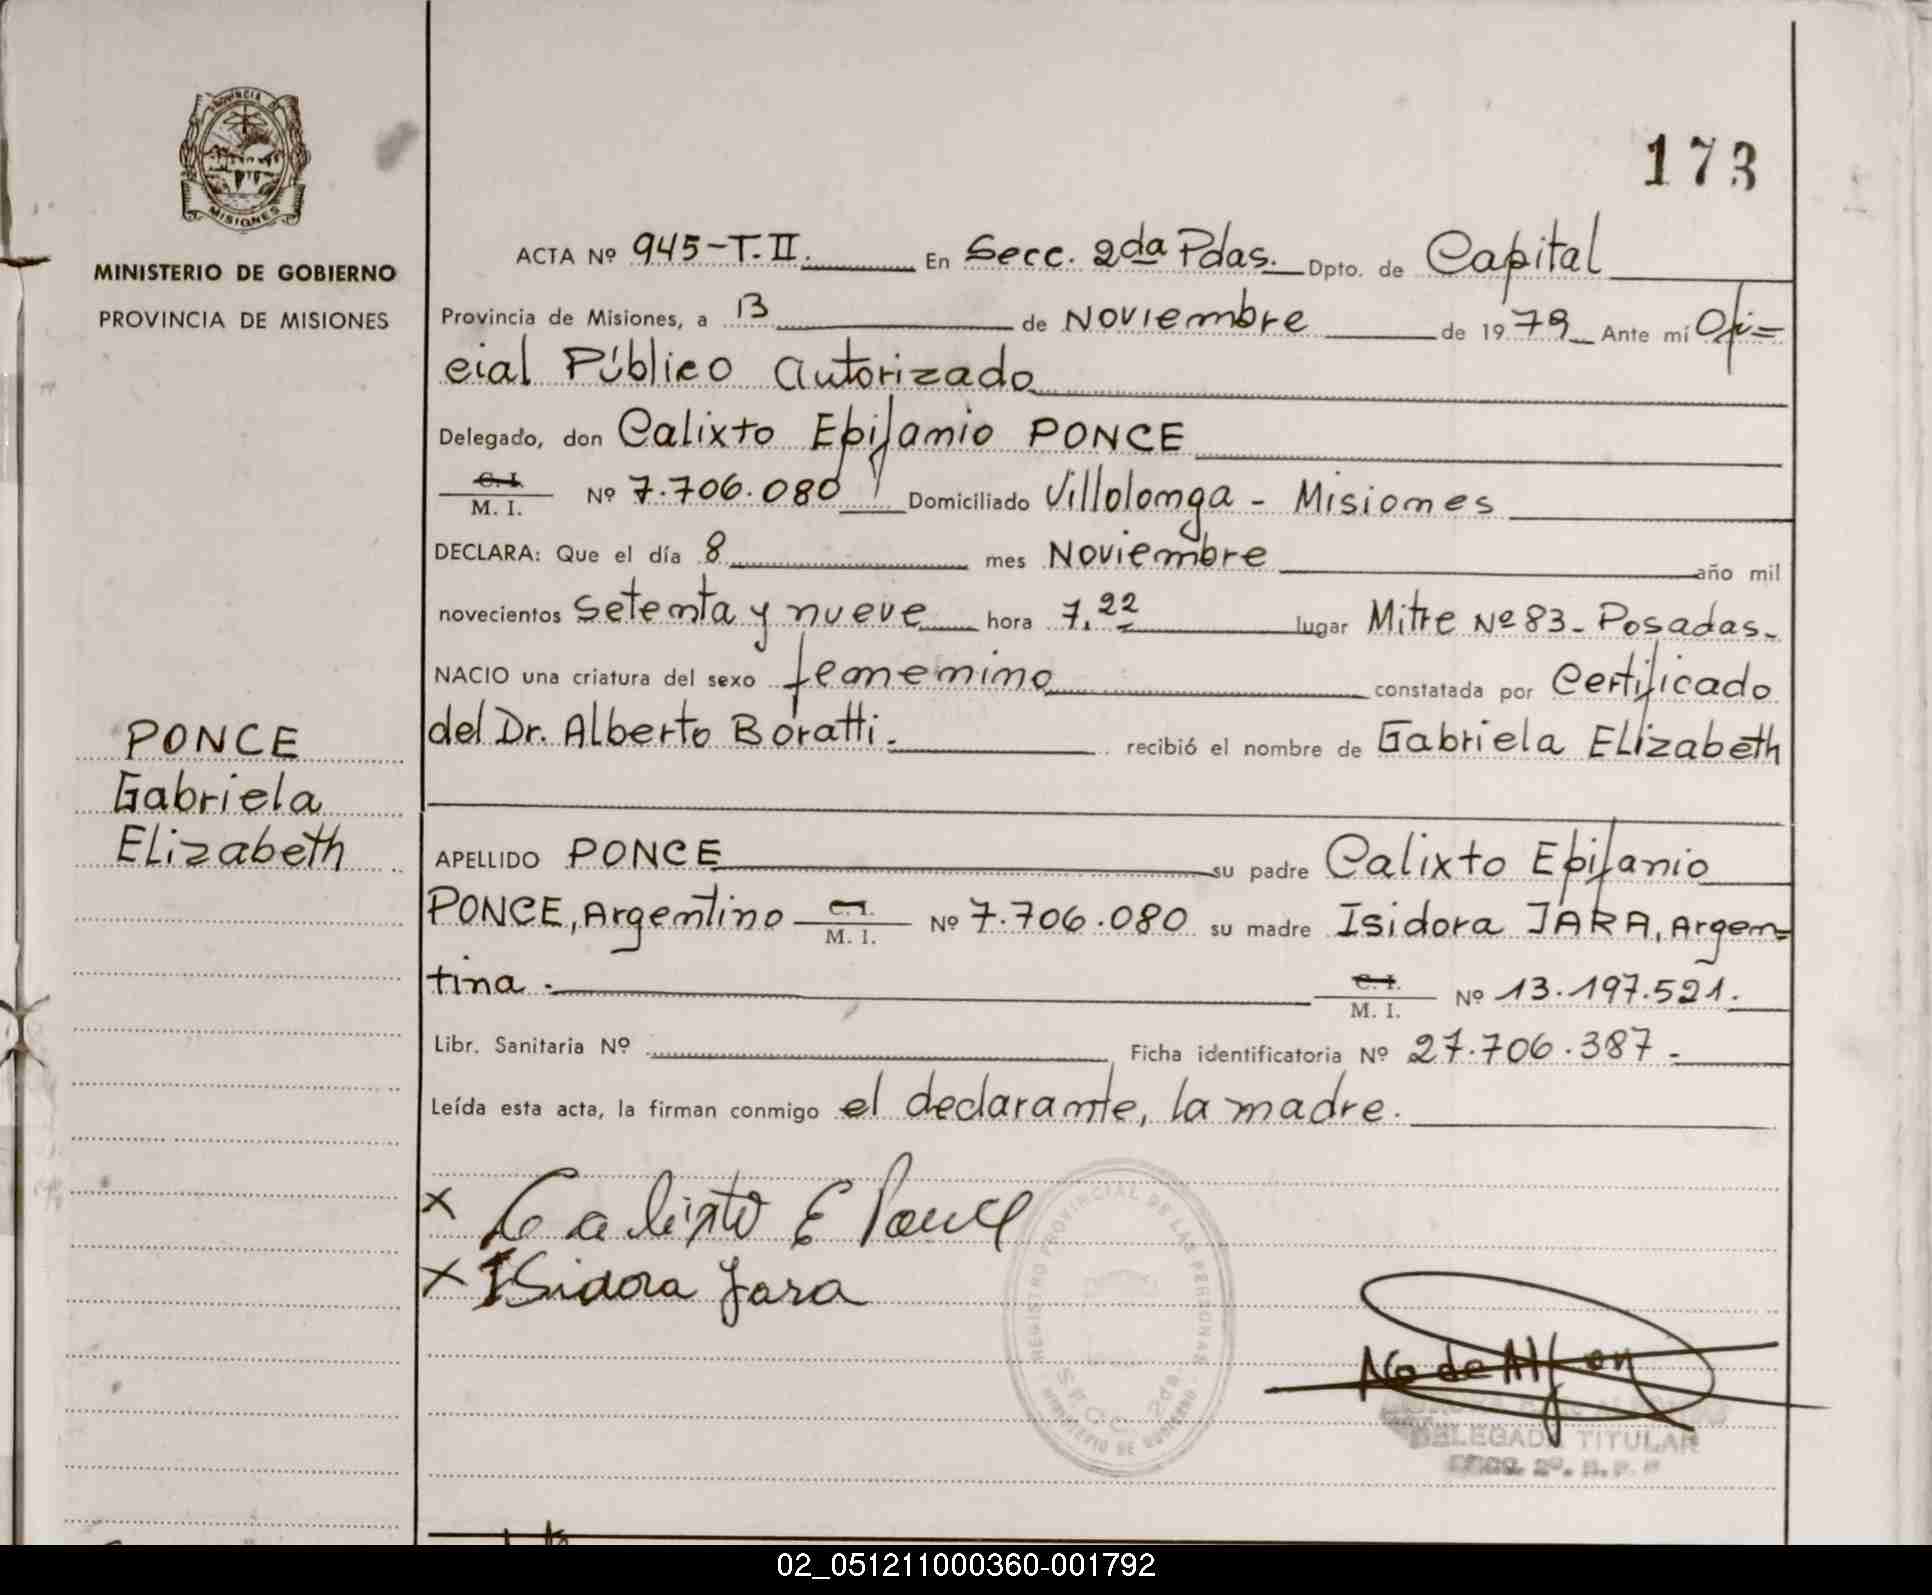 173
PROVINCIA DE
MISIONES
MINISTERIO DE GOBIERNO
PROVINCIA DE MISIONES
PONCE
Gabriela
Elizabeth
ACTA Nº 945-T.II. En Secc. 2da Pdas. Dpto. de Capital
Provincia de Misiones, a 13 de Noviembre de 1979 Ante mí Ofi=
cial Público Autorizado
Delegado, don Calixto Epifanio PONCE
C. I.
M. I. Nº 7.706.080 Domiciliado Villolonga - Misiones
DECLARA: Que el día 8 mes Noviembre año mil
novecientos setenta y nueve hora 7,22 lugar Mitre Nº 83- Posadas-
NACIO una criatura del sexo femenino constatada por Certificado
del Dr. Alberto Boratti. recibió el nombre de Gabriela Elizabeth
APELLIDO PONCE su padre Calixto Epifanio
PONCE, Argentino C. I. M. I. Nº 7.706.080 su madre Isidora JARA, Argen=
tina. C. I. M. I. Nº 13.197.521.
Libr. Sanitaria Nº Ficha identificatoria Nº 27.706.387.-
Leída esta acta, la firman conmigo el declarante, la madre.
x Calixto E Ponce
x Isidora Jara
REGISTRO PROVINCIAL DE LAS PERSONAS
SECC. 2da.
MINISTERIO DE GOBIERNO
DELEGADA TITULAR
02_051211000360-001792